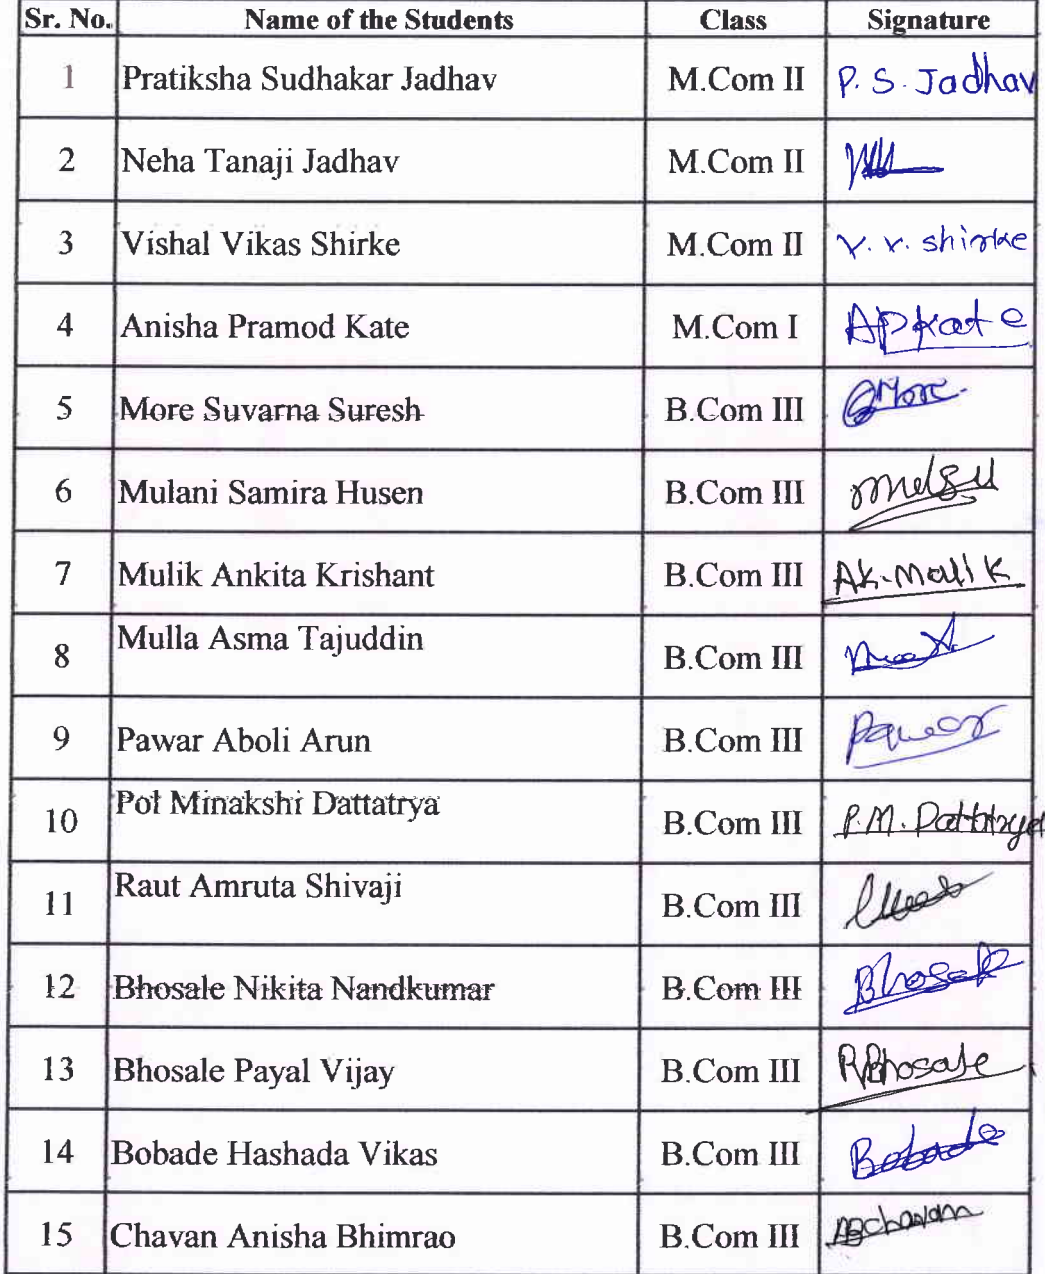 Sr. No. Name of the Students Class Signature
1 Pratiksha Sudhakar Jadhav M.Com II P. S. Jadhav
2 Neha Tanaji Jadhav M.Com II
3 Vishal Vikas Shirke M.Com II v. v. shirke
4 Anisha Pramod Kate M.Com I APKate
5 More Suvarna Suresh B.Com III SMore
6 Mulani Samira Husen B.Com III
7 Mulik Ankita Krishant B.Com III AK.Mulik
8 Mulla Asma Tajuddin B.Com III
9 Pawar Aboli Arun B.Com III Pawar
10 Pol Minakshi Dattatrya B.Com III P.M. Dattatrya
11 Raut Amruta Shivaji B.Com III
12 Bhosale Nikita Nandkumar B.Com III Bhosale
13 Bhosale Payal Vijay B.Com III PBhosale
14 Bobade Hashada Vikas B.Com III Bobade
15 Chavan Anisha Bhimrao B.Com III ABchavan